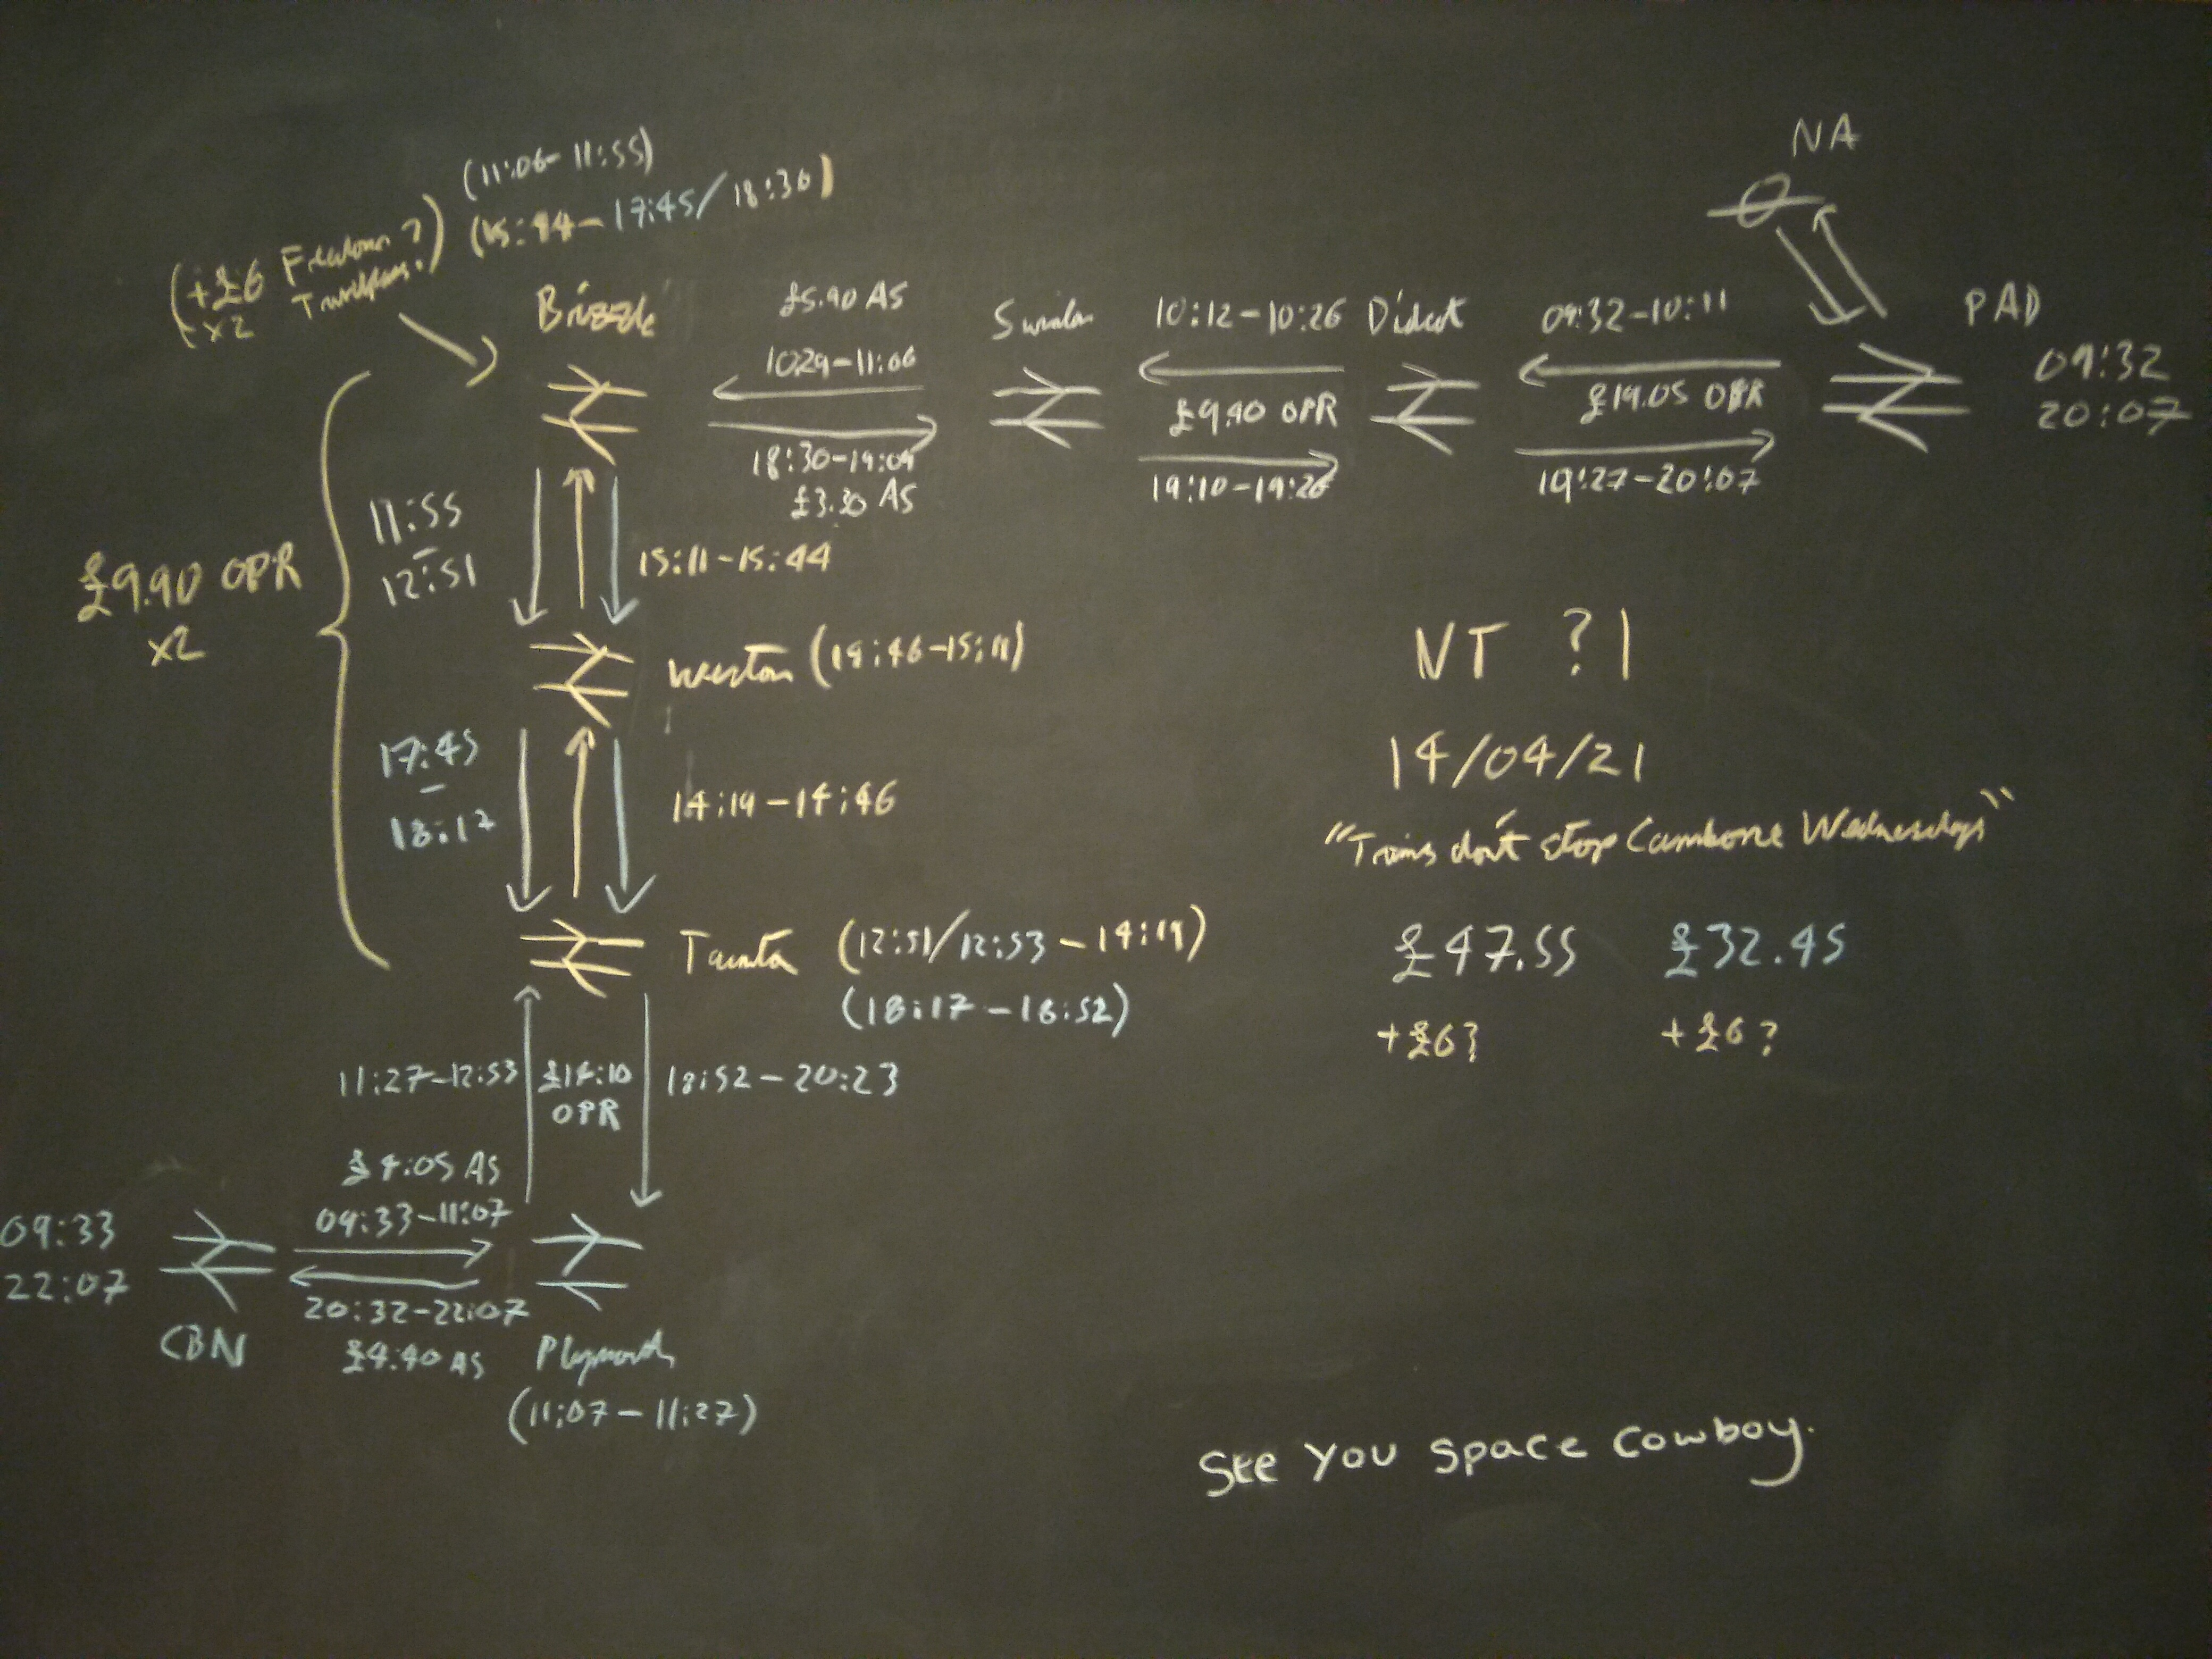 NA
(11:06-11:55)
(15:44-17:45/18:30)
(+£6 Freedom?
x2 Travelpass?)
Brizzle
£5.90 AS
10:29-11:06
18:30-19:09
£3.30 AS
Swindon
10:12-10:26
£9.90 OPR
19:10-19:26
Didcot
09:32-10:11
£19.05 OPR
19:27-20:07
PAD
09:32
20:07
£9.90 OPR
x2
11:55
-
12:51
15:11-15:44
Weston (14:46-15:11)
17:45
-
18:17
14:19-14:46
Taunton (12:51/12:53-14:19)
(18:17-18:52)
11:27-12:53
£14:10
OPR
18:52-20:23
£4:05 AS
09:33-11:07
09:33
22:07
CBN
20:32-22:07
£4:40 AS
Plymouth
(11:07-11:27)
NT ?1
14/04/21
"Trains don't stop Camborne Wednesdays"
£47.55 £32.45
+£6? +£6?
See You Space Cowboy.